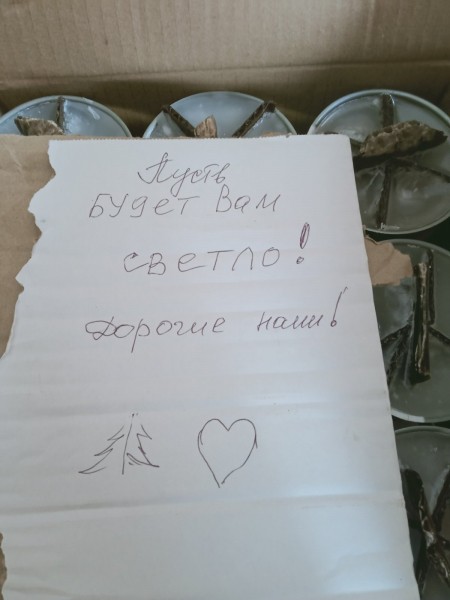 Пусть
БУДЕТ Вам
СВЕТЛО!
Дорогие наши!